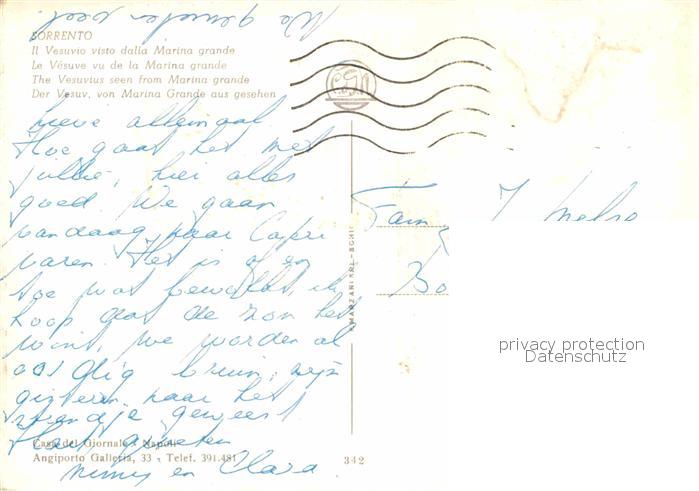 We genieten veel.
SORRENTO
Il Vesuvio visto dalla Marina grande
Le Vésuve vu de la Marina grande
The Vesuvius seen from Marina grande
Der Vesuv, von Marina Grande aus gesehen
Lieve allemaal
Hoe gaat het met
jullie, hier alles
goed. We gaan
vandaag naar Capri
varen. Het is af en
toe wat bewolkt, ik
hoop dat de zon het
wint, we worden al
aardig bruin, zijn
gisteren naar het
strandje geweest
Hart. groeten
en Clara
Casa del Giornale - Napoli
Angiporto Galleria, 33 - Telef. 391.481
342
MARZARI SRL - SCHIO
Fam.
Bo
privacy protection
Datenschutz